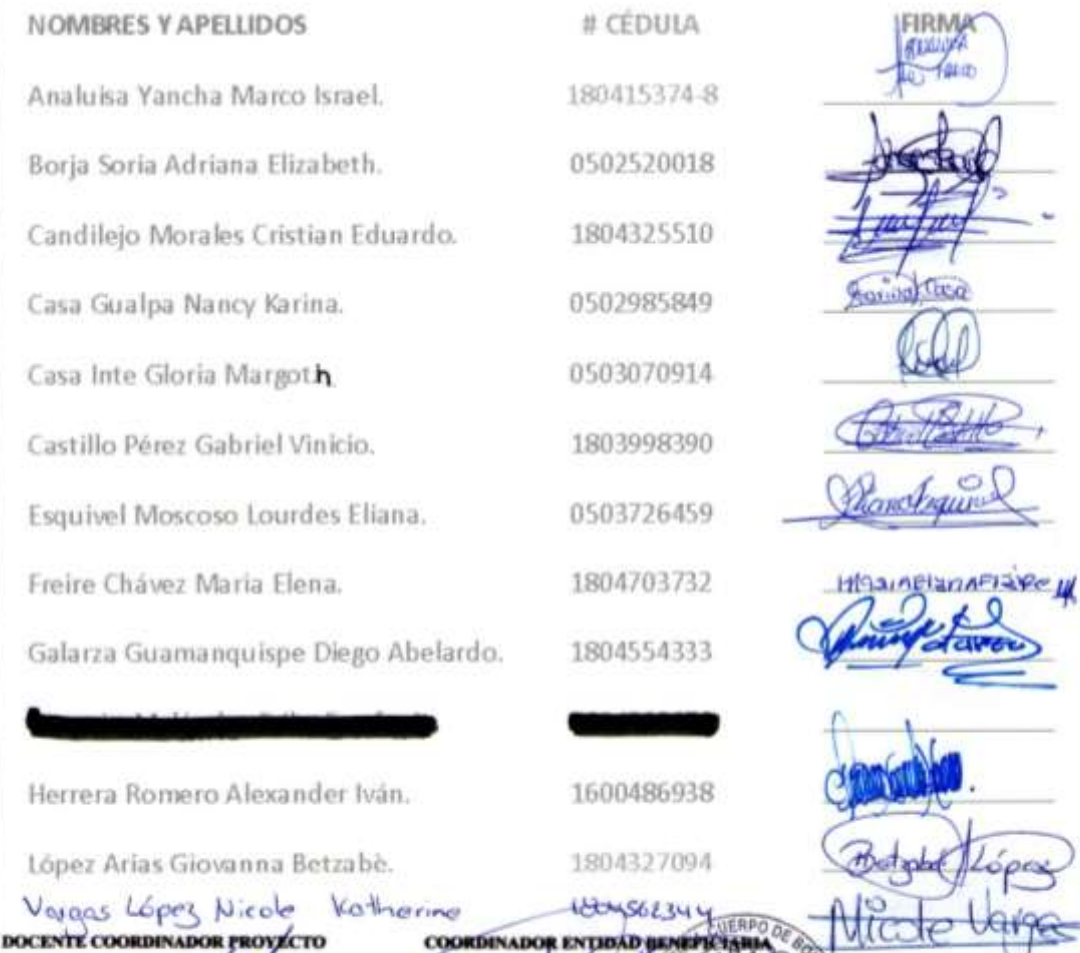 NOMBRES Y APELLIDOS # CÉDULA FIRMA
Analuisa Yancha Marco Israel. 180415374-8
Borja Soria Adriana Elizabeth. 0502520018
Candilejo Morales Cristian Eduardo. 1804325510
Casa Gualpa Nancy Karina. 0502985849 Karina Casa
Casa Inte Gloria Margoth 0503070914
Castillo Pérez Gabriel Vinicio. 1803998390
Esquivel Moscoso Lourdes Eliana. 0503726459
Freire Chávez Maria Elena. 1804703732
Galarza Guamanquispe Diego Abelardo. 1804554333
Herrera Romero Alexander Iván. 1600486938
López Arias Giovanna Betzabè. 1804327094 Betzabé López
Vargas López Nicole Katherine 1804562344 Nicole Vargas
DOCENTE COORDINADOR PROYECTO COORDINADOR ENTIDAD BENEFICIARIA